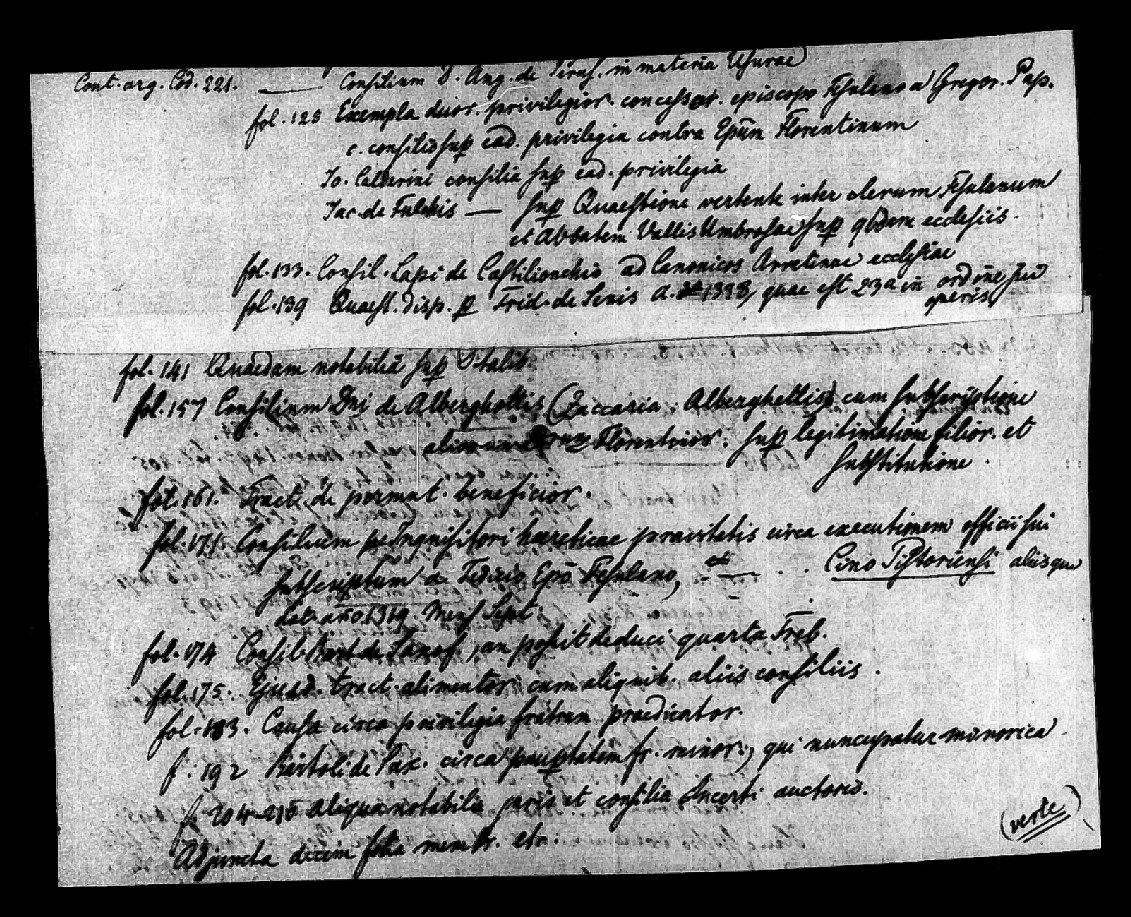 Cont. arg. Cod. 221. — Consilium D. Ang. de Perus. in materia Usurae
fol. 125 Exempla duor. privilegior. concessor. episcopo Fesulano a Gregor. Pap.
c. consilio sup ead. privilegia contra Epūm Florentinum
Jo. Calderini consilia sup ead. privilegia
Jac. de — sup Quaestione vertente inter clerum Fesulanum
et Abbatem Vallis Umbrosae sup qbdem ecclesiis.
fol. 133. Consil. Lapi de Castilionchio ad Canonicos Arretinae ecclesiae
fol. 139 Quaest. disp. p Frid. de Senis a. 1338, quae est 23a in ordine sui
operis
fol. 141 Quaedam notabilia sup
fol. 157 Consilium Dni de Alberghottis (Zaccaria Alberghellis) cum subscriptione
Florentinor. sup legitimatione filior. et
substitutione.
fol. 161. Tract. de permut. beneficior.
fol. 171. Consilium p Inquisitori haereticae pravitatis circa executionem officii sui
subscriptum a Tedicio Epō Fesulano, et — . . Cino Pistoriensi aliisque
dat. año 1319 Mens Sept.
fol. 174 Consil. Bart. de Saxof., an possit deduci quarta Treb.
fol. 175. Ejusd. tract. alimentor. cum aliquib. aliis consiliis.
fol. 183. Causa circa privilegia fratrum praedicator.
f. 192 Bartoli de Sax. circa paupertatem fr. minor., qui nuncupatur minorica.
f. 204-215 aliqua notabilia juris et consilia Incerti auctoris.
Adjuncta decem folia membr. etc.
(verte)